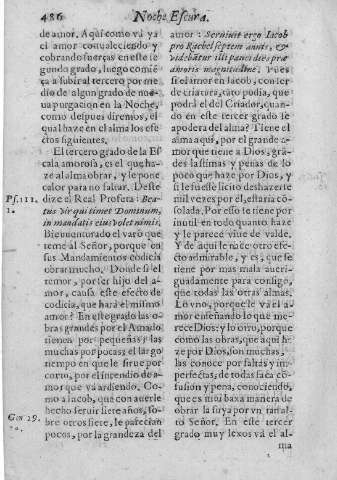 486 Noche Escura.
de amor. Aqui como vá ya
el amor conualeciendo y
cobrando fuerças en este se
gundo grado, luego comiẽ
ça a subir al tercero por me
dio de algun grado de nue
ua purgacion en la Noche,
como despues diremos, el
qual haze en el alma los efe
ctos siguientes.
El tercero grado de la Es
cala amorosa, es el que ha
ze al alma obrar, y le pone
calor para no faltar. Deste
dize el Real Profeta: Bea-
tus vir qui timet Dominum,
in mandatis eius volet nimis.
Bienuenturado el varõ que
teme al Señor, porque en
sus Mandamientos codicia
obrar mucho. Donde si el
temor, por ser hijo del a-
mor, causa este efecto de
codicia, que hará el mismo
amor? En este grado las o-
bras grandes por el Amado
tienen por pequeñas; las
muchas por pocas; el largo
tiempo en que le sirue por
corto, por el incendio de a-
mor que vá ardiendo. Co-
mo a Iacob, que con auerle
hecho seruir siete años, so-
bre otros siete, le parecian
pocos, por la grandeza del
Ps. 111.
1.
Gen. 29.
amor: Seruiuit ergo Iacob
pro Rachel septem annis, &
videbãtur illi pauci dies præ
amoris magnitudine. Pues
si el amor en Iacob, con ser
de criatura, tãto podia, que
podrá el del Criador, quan-
do en este tercer grado se
apodera del alma? Tiene el
alma aqui, por el grande a-
mor que tiene a Dios, grã-
des lastimas y penas de lo
poco que haze por Dios, y
si le fuesse licito deshazerse
mil vezes por él, estaria cõ-
solada. Por esso se tiene por
inutil en todo quanto haze
y le parece viue de valde.
Y de aqui le nace otro efe-
cto admirable, y es, que se
tiene por mas mala aueri-
guadamente para consigo,
que todas las otras almas.
Lo vno, porque le vá el a-
mor enseñando lo que me-
rece Dios; y lo otro, porque
como las obras, que aqui ha
ze por Dios, son muchas,
las conoce por faltas y im-
perfectas, de todas saca cõ-
fusion y pena, conociendo,
que es mui baxa manera de
obrar la suya por vn tan al-
to Señor. En este tercer
grado muy lexos vá el al-
ma